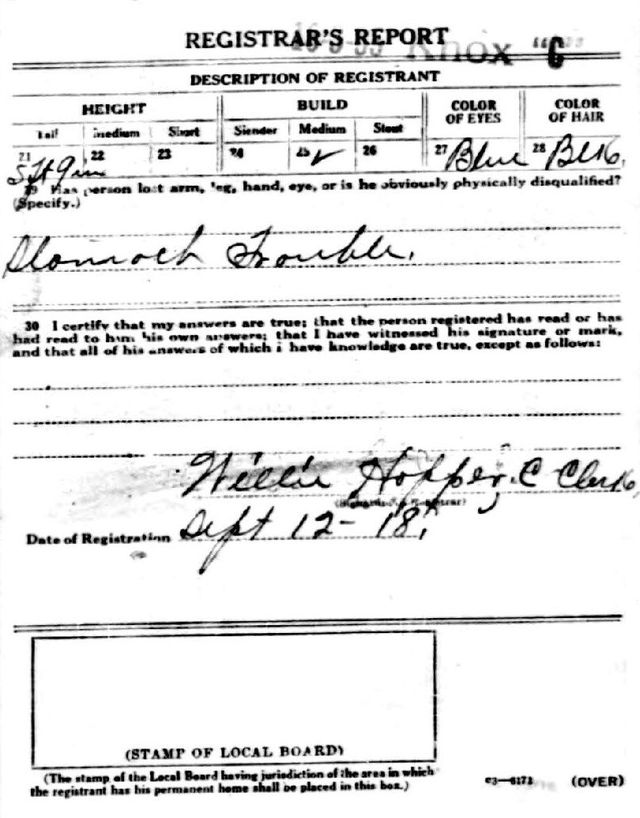 REGISTRAR'S REPORT
Knox "C"
DESCRIPTION OF REGISTRANT
HEIGHT BUILD COLOR OF EYES COLOR OF HAIR
Tall medium Short Slender Medium Stout
21 22 23 24 25 ✓ 26 27 Blue 28 Blk.
5 ft 9 in
29 Has person lost arm, leg, hand, eye, or is he obviously physically disqualified?
(Specify.)
Stomach Trouble.
30 I certify that my answers are true; that the person registered has read or has
had read to him his own answers; that I have witnessed his signature or mark,
and that all of his answers of which I have knowledge are true, except as follows:
Willie Hopper, C Clerk
(Signature of Registrar)
Date of Registration Sept 12-18.
(STAMP OF LOCAL BOARD)
(The stamp of the Local Board having jurisdiction of the area in which
the registrant has his permanent home shall be placed in this box.)
03—6171 (OVER)